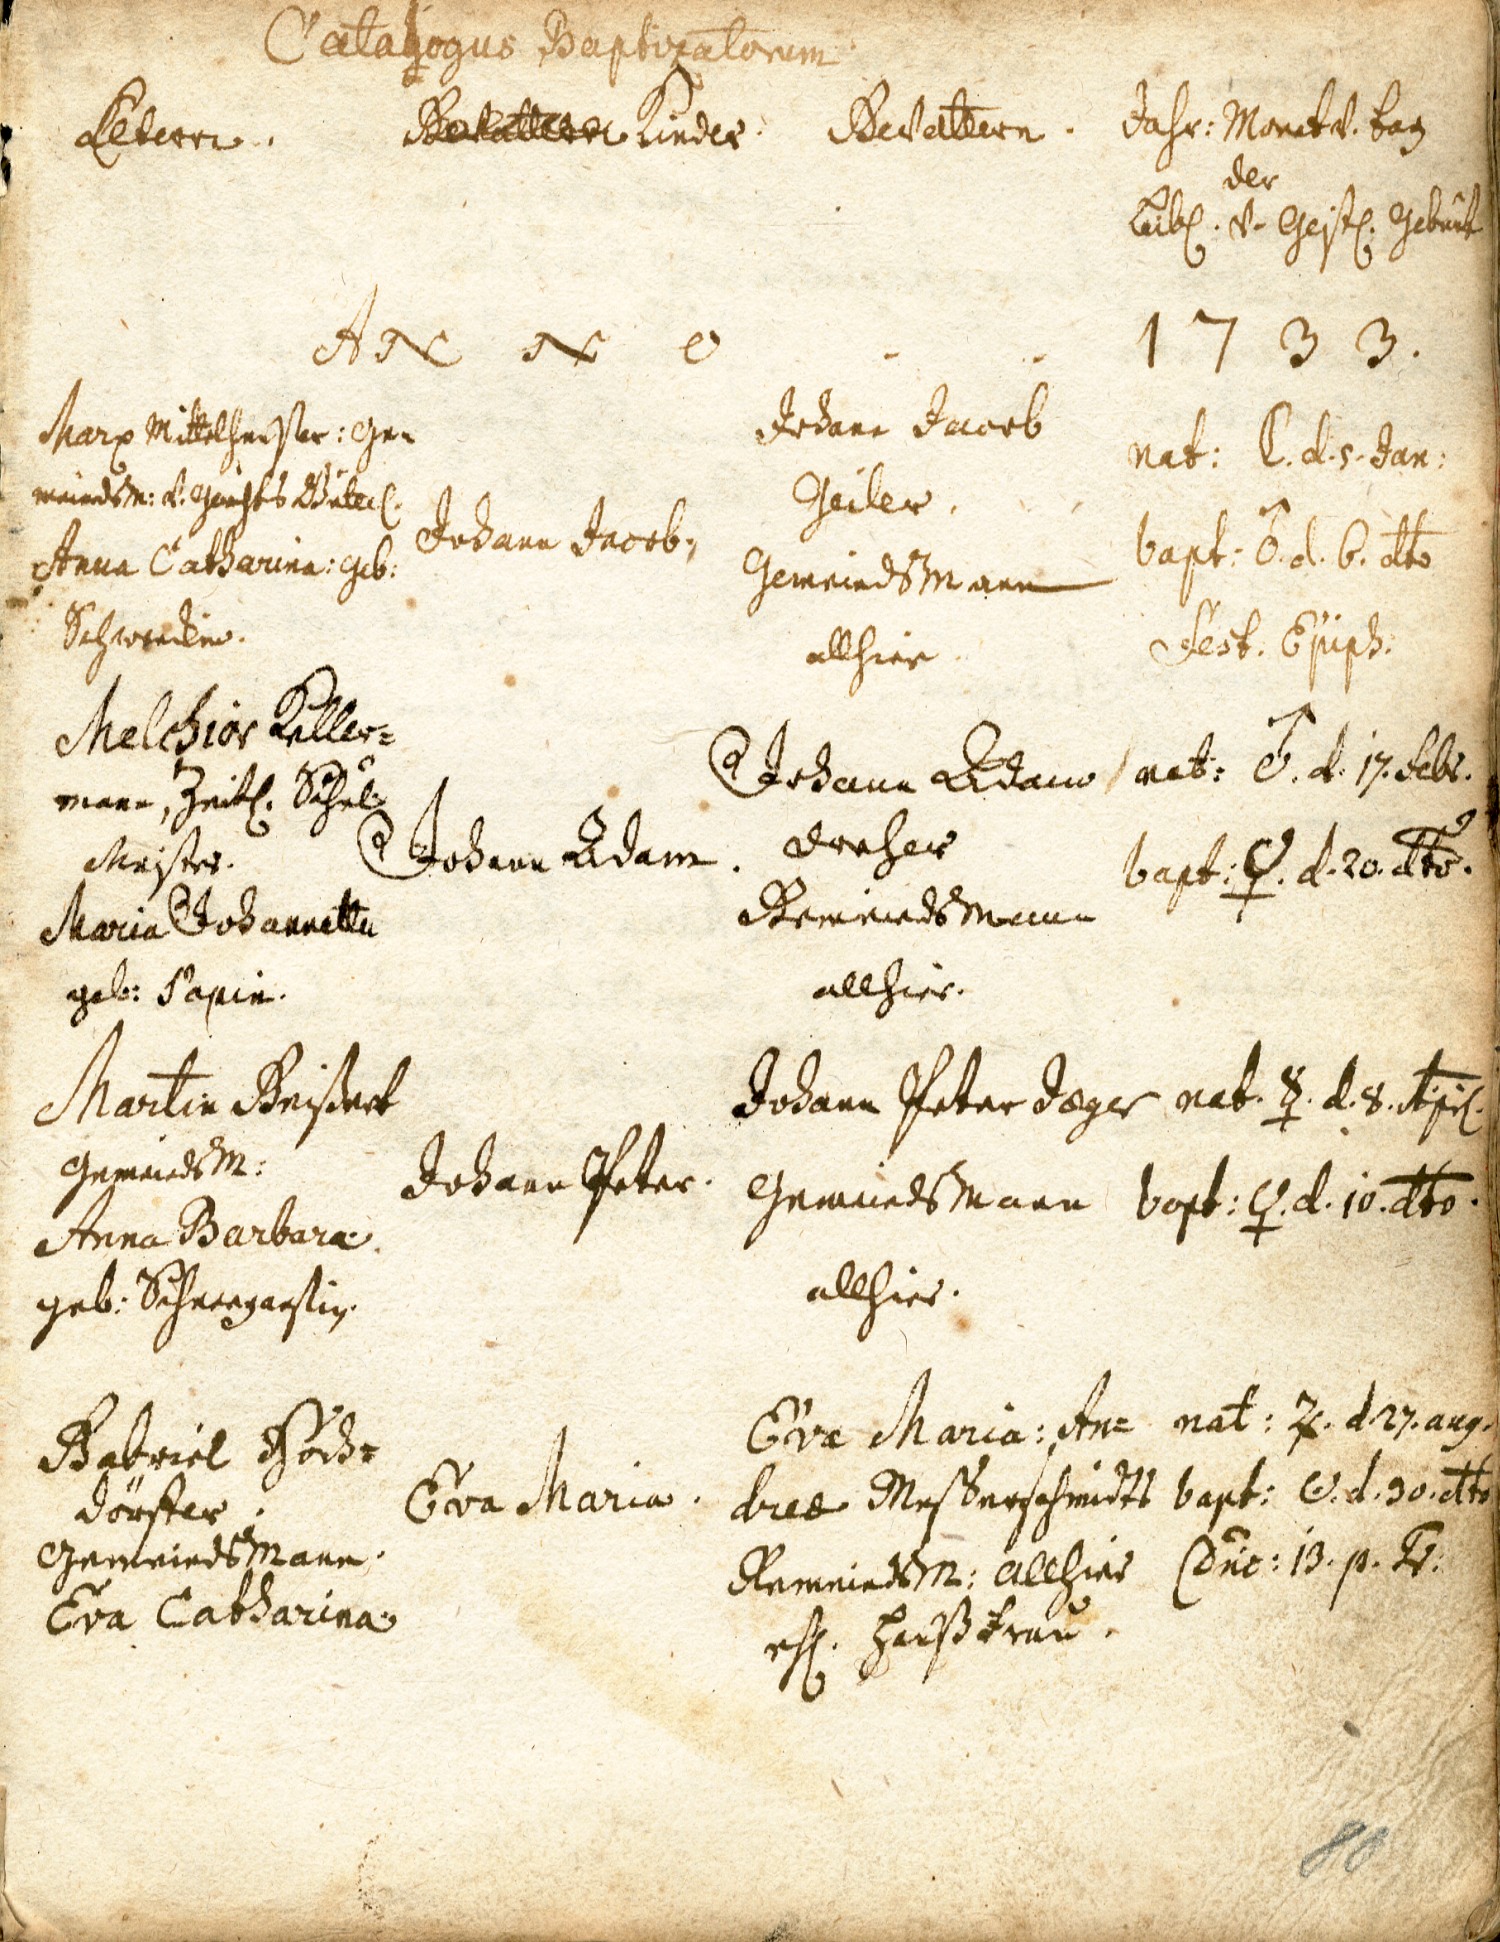 Catalogus Baptizatorum
Eltern. Gevattern Kinder. Gevattern. Jahr: Monat v. tag
der
Leibl. v. Geistl. Geburt
ANNO 1733.
Marx Mittelheuser: Ge-
meindsm: v. Gerichts
Anna Catharina: geb:
Johann Jacob.
Johann Jacob
Geiler.
Gemeindsmann
allhier.
nat: ☾. d. 5. Jan:
bapt: ♂. d. 6. dto
Fest. Epiph:
Melchior Keller=
mann, Zeitl. Schul
Meister.
Maria Johannetta
geb: Papin.
Johann Adam.
Johann Adam
Dreher
Gemeindsmann
allhier.
nat: ♂. d. 17. Febr.
bapt: ♀. d. 20. dto.
Martin Geißert
Gemeindsm:
Anna Barbara
geb:
Johann Peter.
Johann Peter Jæger
Gemeindsmann
allhier.
nat. ☿. d. 8. April.
bapt: ♀. d. 10. dto.
Gabriel Hoch=
dörffer.
Gemeindsmann.
Eva Catharina
Eva Maria.
Eva Maria: An=
dreæ Messerschmidts
Gemeindsm: allhier
ehl. Haußfrau.
nat: ♃. d. 27. aug.
bapt: ☉. d. 30. dto
Dnc: 13. p. Tr.
80